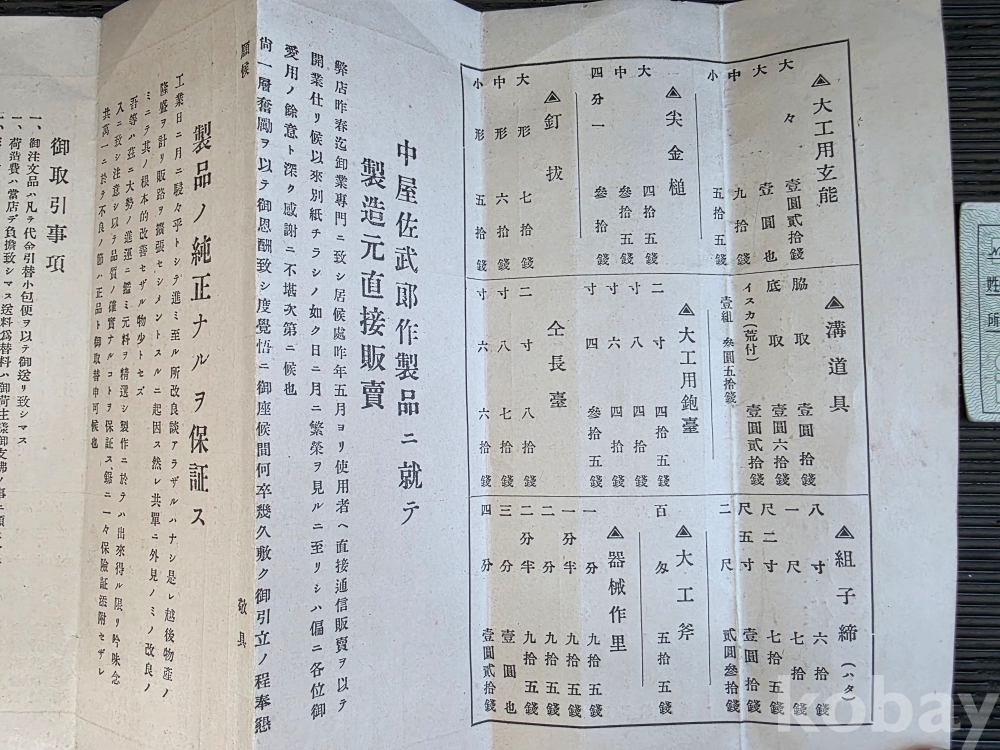 ▲大工用玄能
大々　壹圓貳拾錢
大　壹圓也
中　九拾錢
小　五拾錢
▲尖金槌
大　四拾五錢
中　參拾五錢
四分一　參拾錢
▲釘拔
大形　七拾錢
中形　六拾錢
小形　五拾錢
▲溝道具
脇取　壹圓拾錢
底取　壹圓六拾錢
イスカ(荒付)　壹圓貳拾錢
壹組　參圓五拾錢
▲大工用鉋臺
二寸　四拾五錢
寸八　四拾錢
寸六　四拾錢
寸四　參拾五錢
▲仝長臺
二寸　八拾錢
寸八　七拾錢
寸六　六拾錢
▲組子締(ハタ)
八寸　六拾錢
一尺　七拾錢
尺二寸　七拾五錢
尺五寸　九拾錢
二尺　貳圓參拾錢
▲大工斧
百匁　五拾五錢
▲器械作里
一分　九拾五錢
一分半　九拾五錢
二分　九拾五錢
二分半　九拾五錢
三分　壹圓也
四分　壹圓貳拾錢
中屋佐武郎作製品ニ就テ
製造元直接販賣
弊店昨春迄卸業專門ニ致シ居候處昨年五月ヨリ使用者ヘ直接通信販賣ヲ以テ
開業仕リ候以來別紙チラシノ如ク日ニ月ニ繁榮ヲ見ルニ至リシハ偏ニ各位御
愛用ノ餘意ト深ク感謝ニ不堪次第ニ候也
尙一層奮勵ヲ以テ御恩酬致シ度覺悟ニ御座候間何卒幾久敷ク御引立ノ程奉懇
願候　敬具
製品ノ純正ナルヲ保証ス
工業日ニ月ニ駸々乎トシテ進ミ至ル所改良談アラザルハナシ是レ越後物産ノ
隆盛ヲ計リ販路ヲ擴張セシメントスルニ起因ス然レ共單ニ外見ノミノ改良ノ
ミニテ其ノ根本的改善セザル物少トセズ
吾等ハ茲ニ大勢ノ進運ニ鑑ミ元料ヲ精選シ製作ニ於テハ出來得ル限リ吟味念
入ニ致シ注意シ以テ品質ノ確實ナルコトヲ保証ス鋸ニ一々保險証添附セザレ
共萬一ニ於テ不良ノ節ハ正品ト御取替申可候也
御取引事項
一、御注文品ハ凡テ代金引替小包便ヲ以テ御送リ致シマス
一、荷造費ハ當店デ負擔致シマス送料爲替料ハ御荷主樣御支拂ノ事ニ願
姓
所
kobay